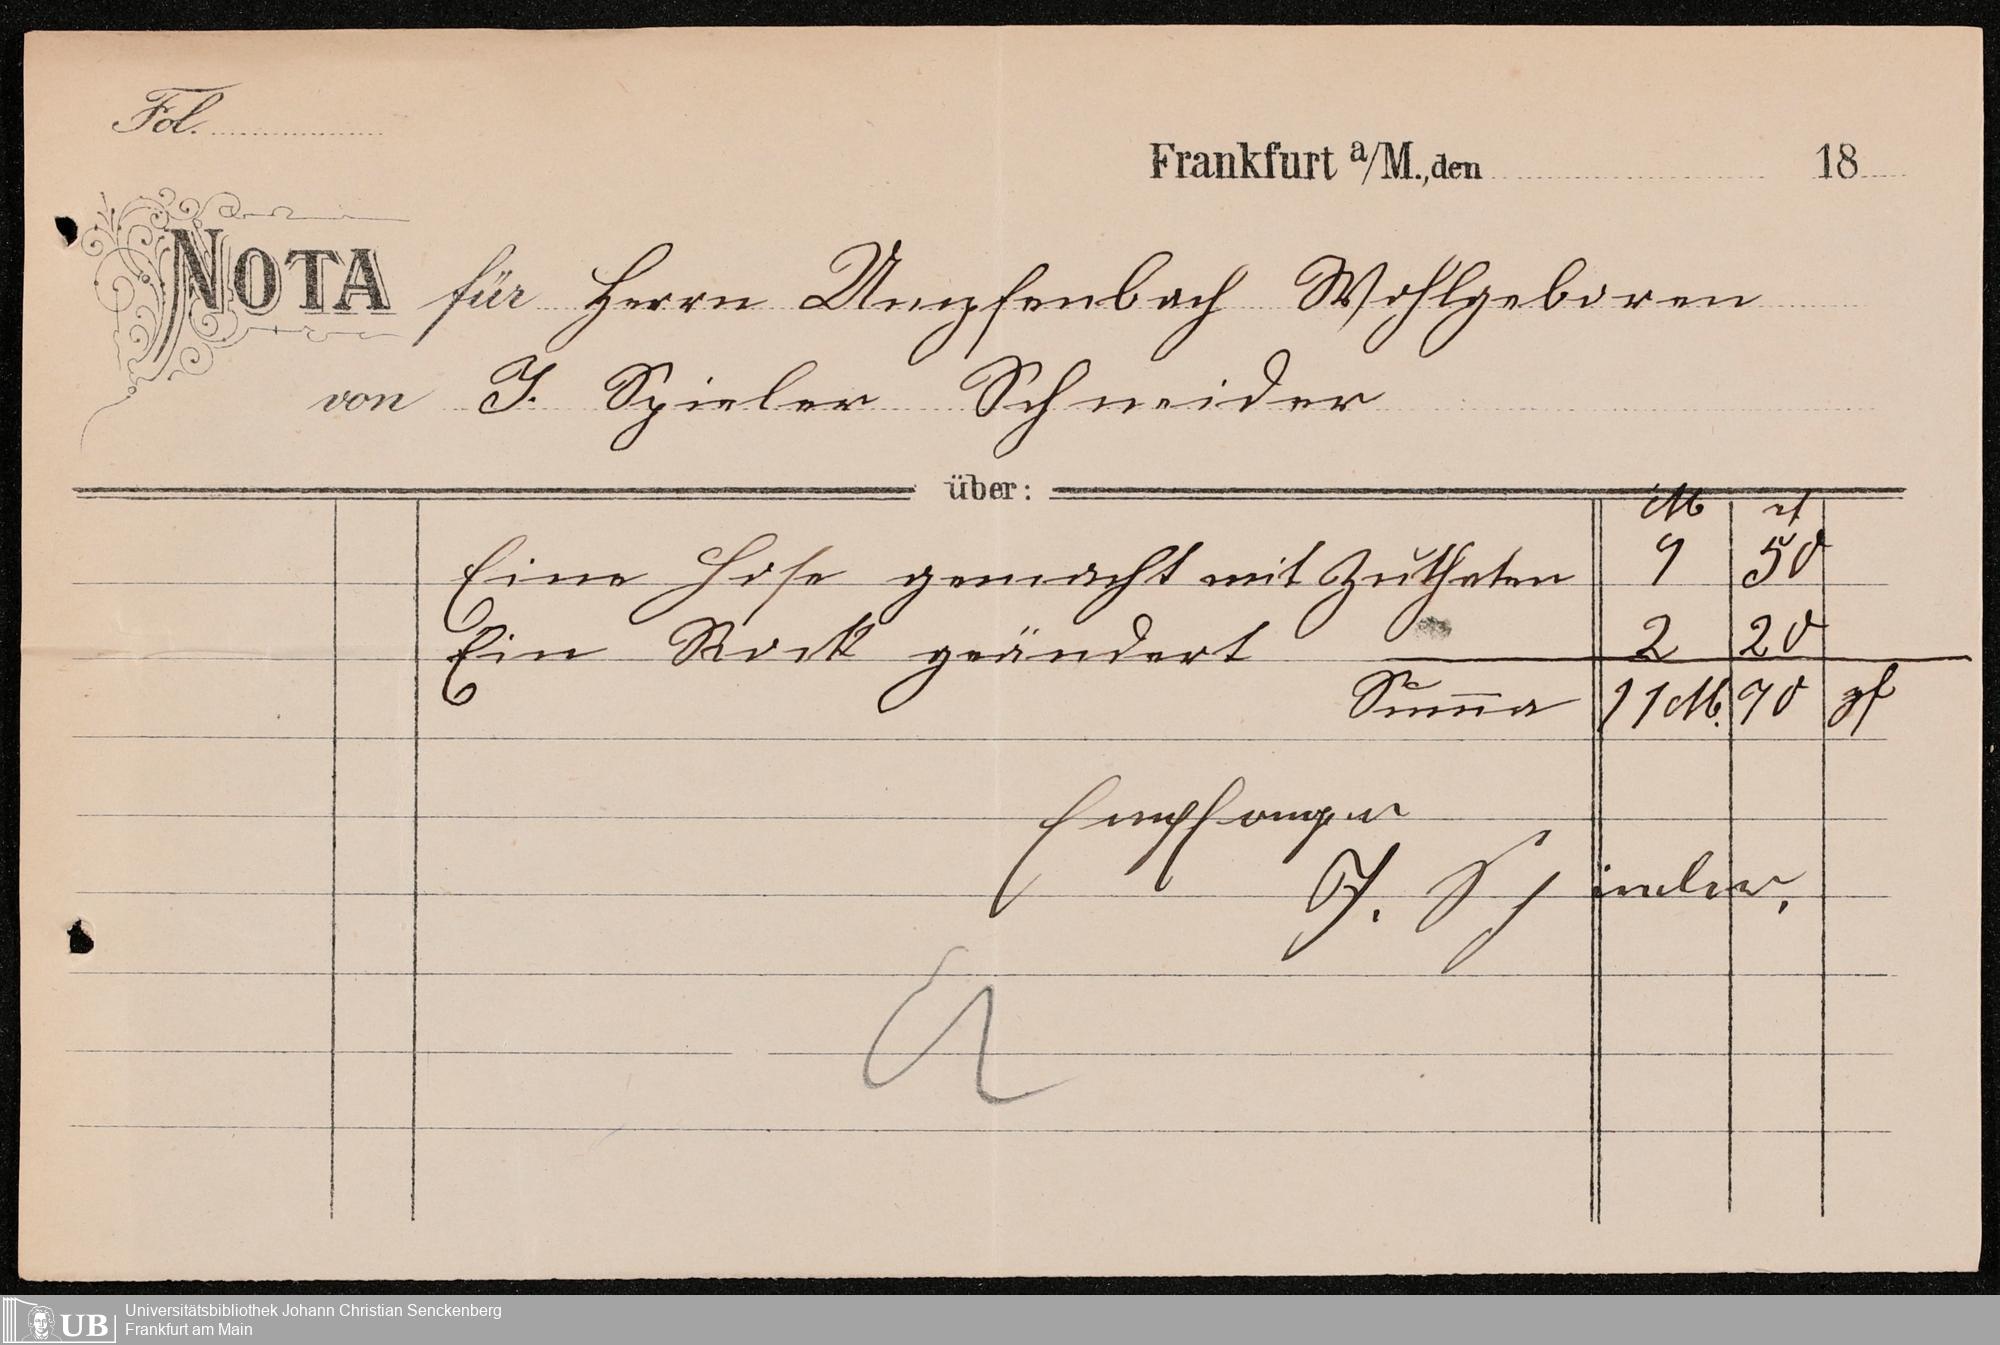 Fol.
Frankfurt a/M., den 18
NOTA für Herrn Umpfenbach Wohlgeboren
von J. Spieler Schneider
über:
M ₰
Eine Hose gemacht mit Zuthaten 9 50
Ein Rock geändert 2 20
Summa 11 M. 70 ₰
Empfangen
J. Spieler.
UB
Universitätsbibliothek Johann Christian Senckenberg
Frankfurt am Main